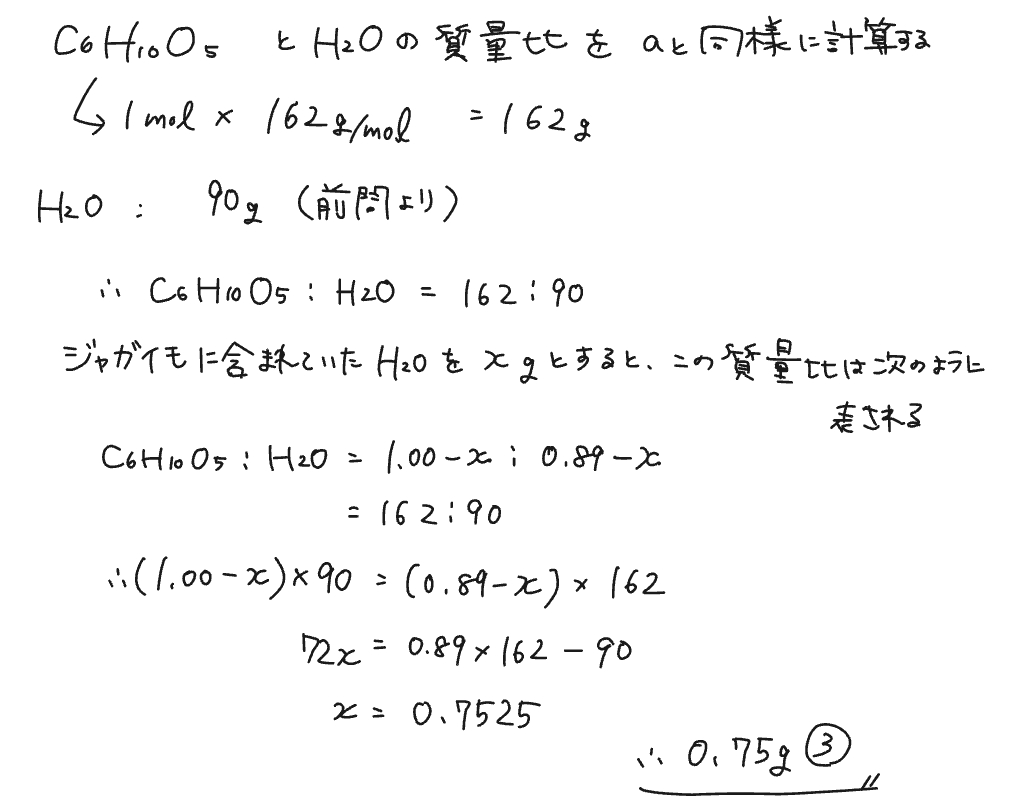 C6H10O5 と H2O の 質量比を aと同様に計算する
↳ 1mol × 162g/mol = 162g
H2O : 90g (前問より)
∴ C6H10O5 : H2O = 162 : 90
ジャガイモに含まれていた H2O を x g とすると、この質量比は次のように
表される
C6H10O5 : H2O = 1.00 - x : 0.89 - x
= 162 : 90
∴ (1.00 - x) × 90 = (0.89 - x) × 162
72x = 0.89 × 162 - 90
x = 0.7525
∴ 0.75g ③